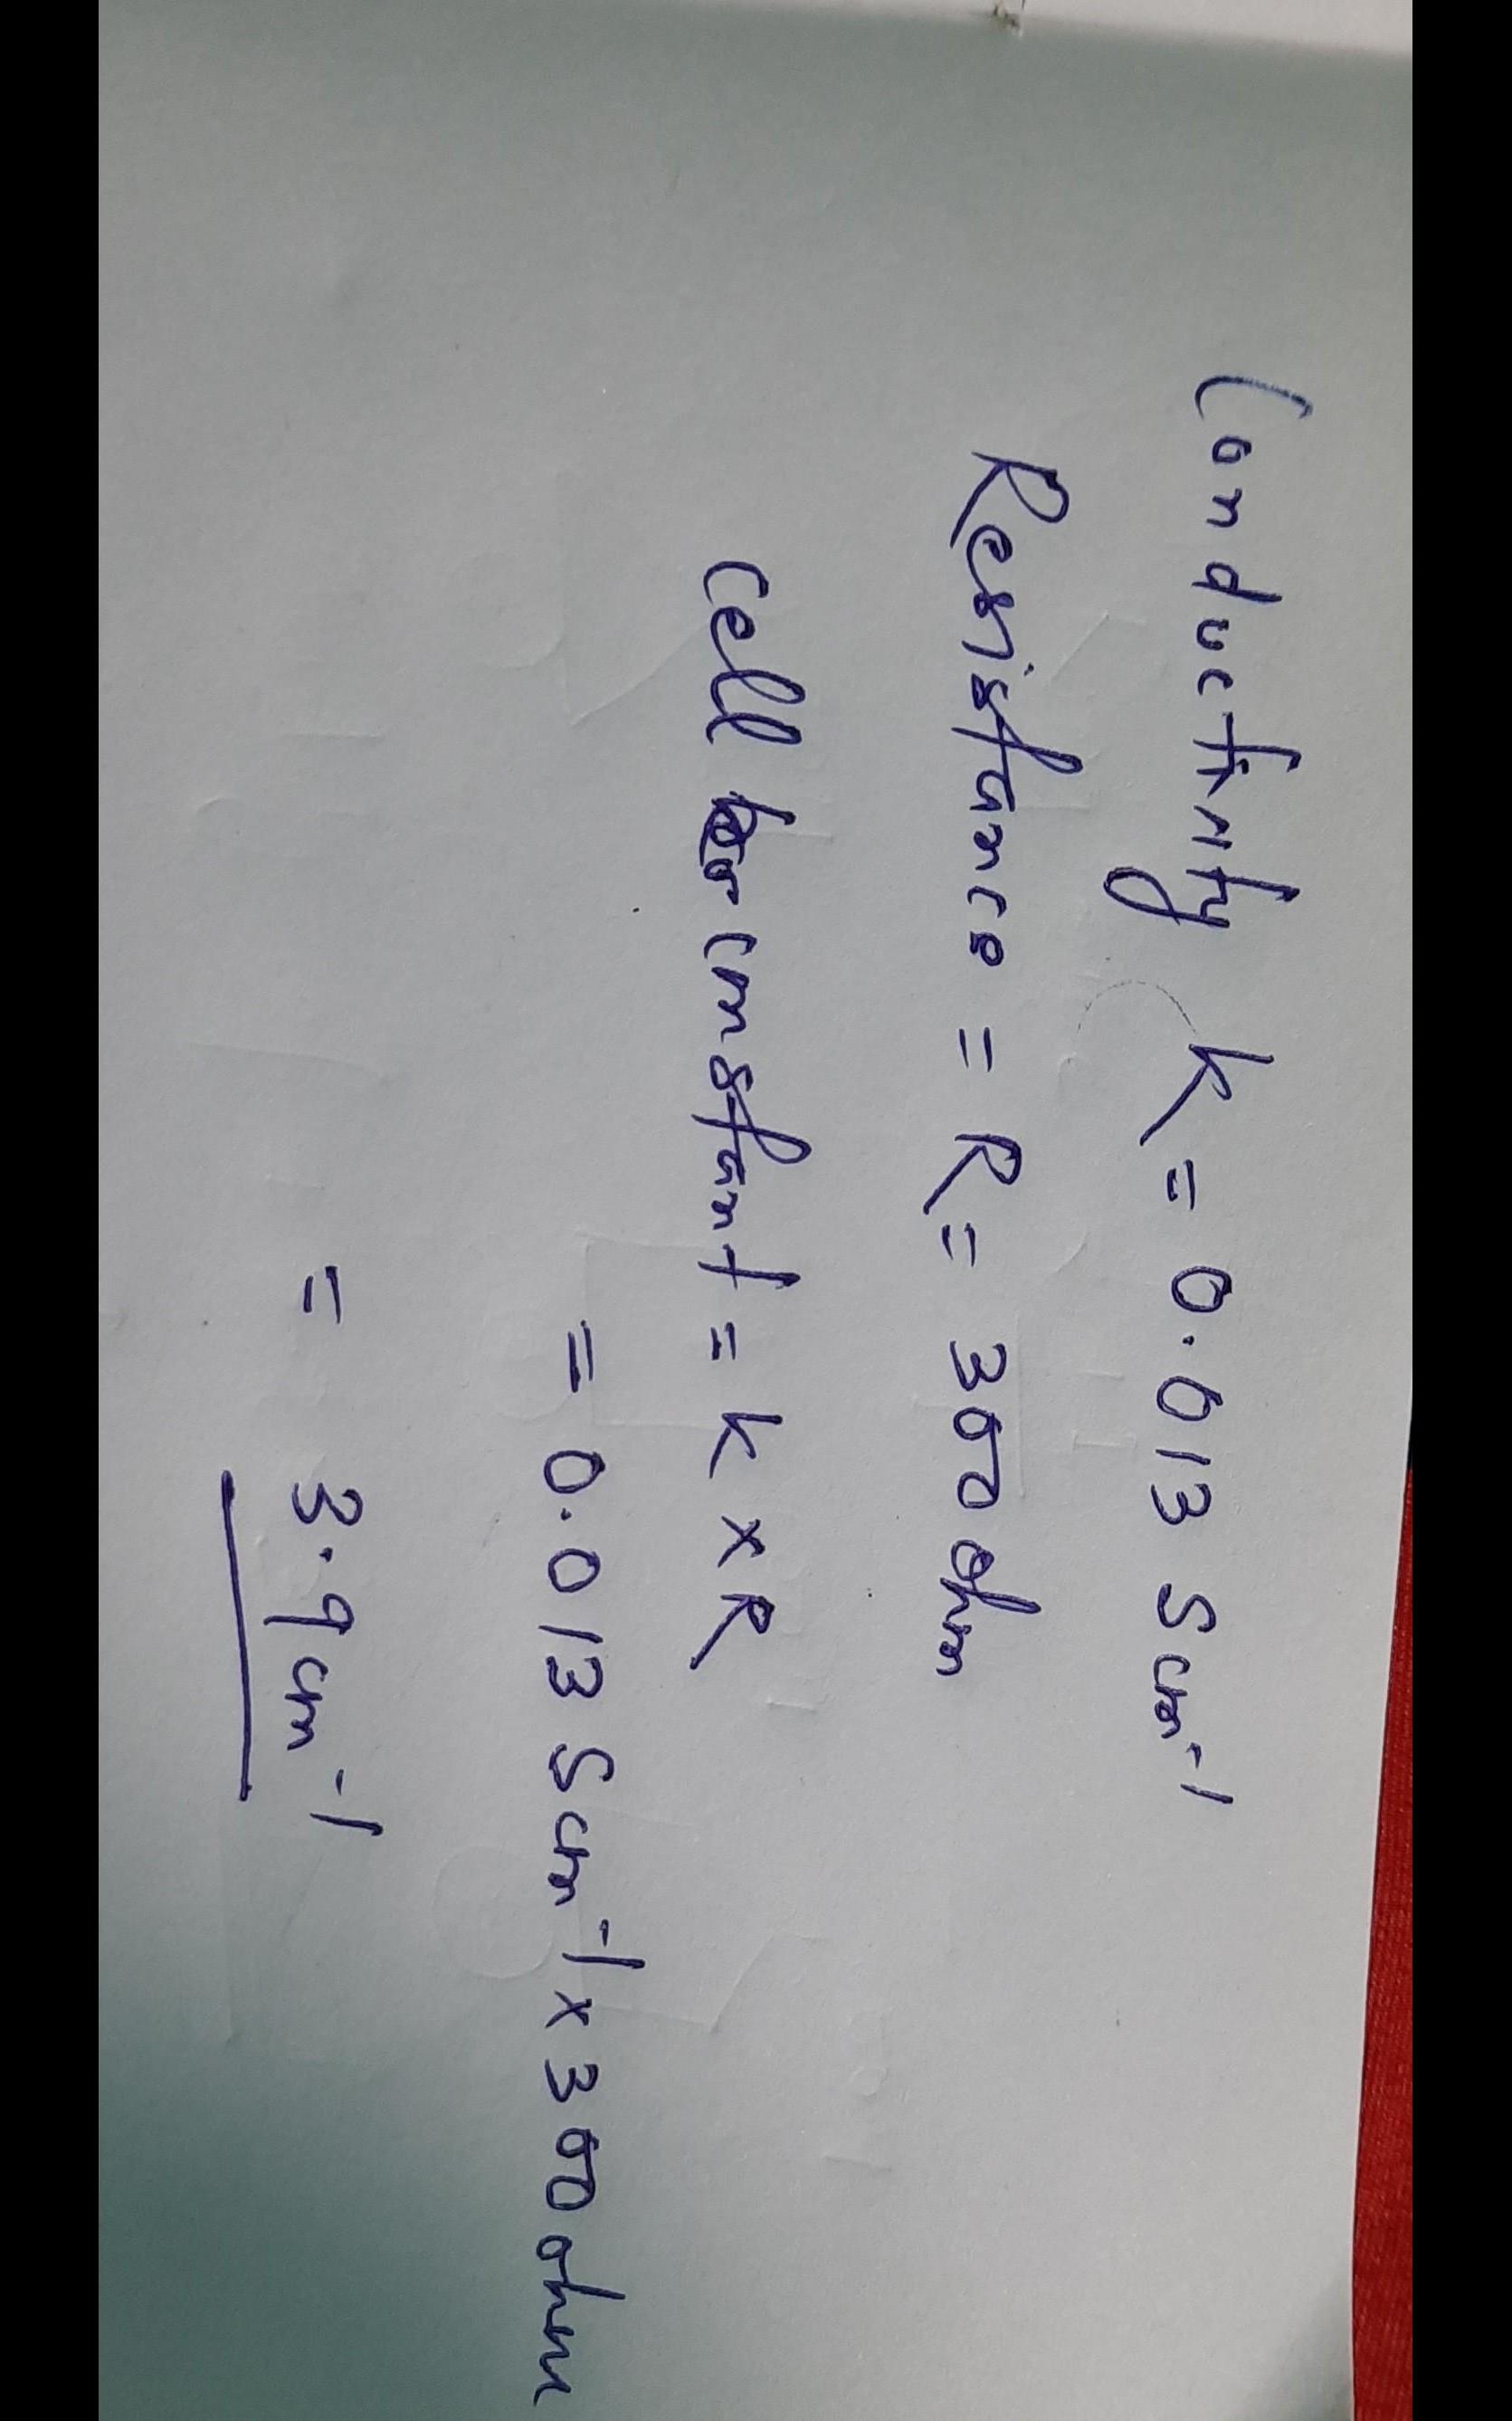 Conductivity K = 0.013 S cm⁻¹
Resistance = R = 300 ohm
Cell constant = K × R
= 0.013 S cm⁻¹ × 300 ohm
= 3.9 cm⁻¹